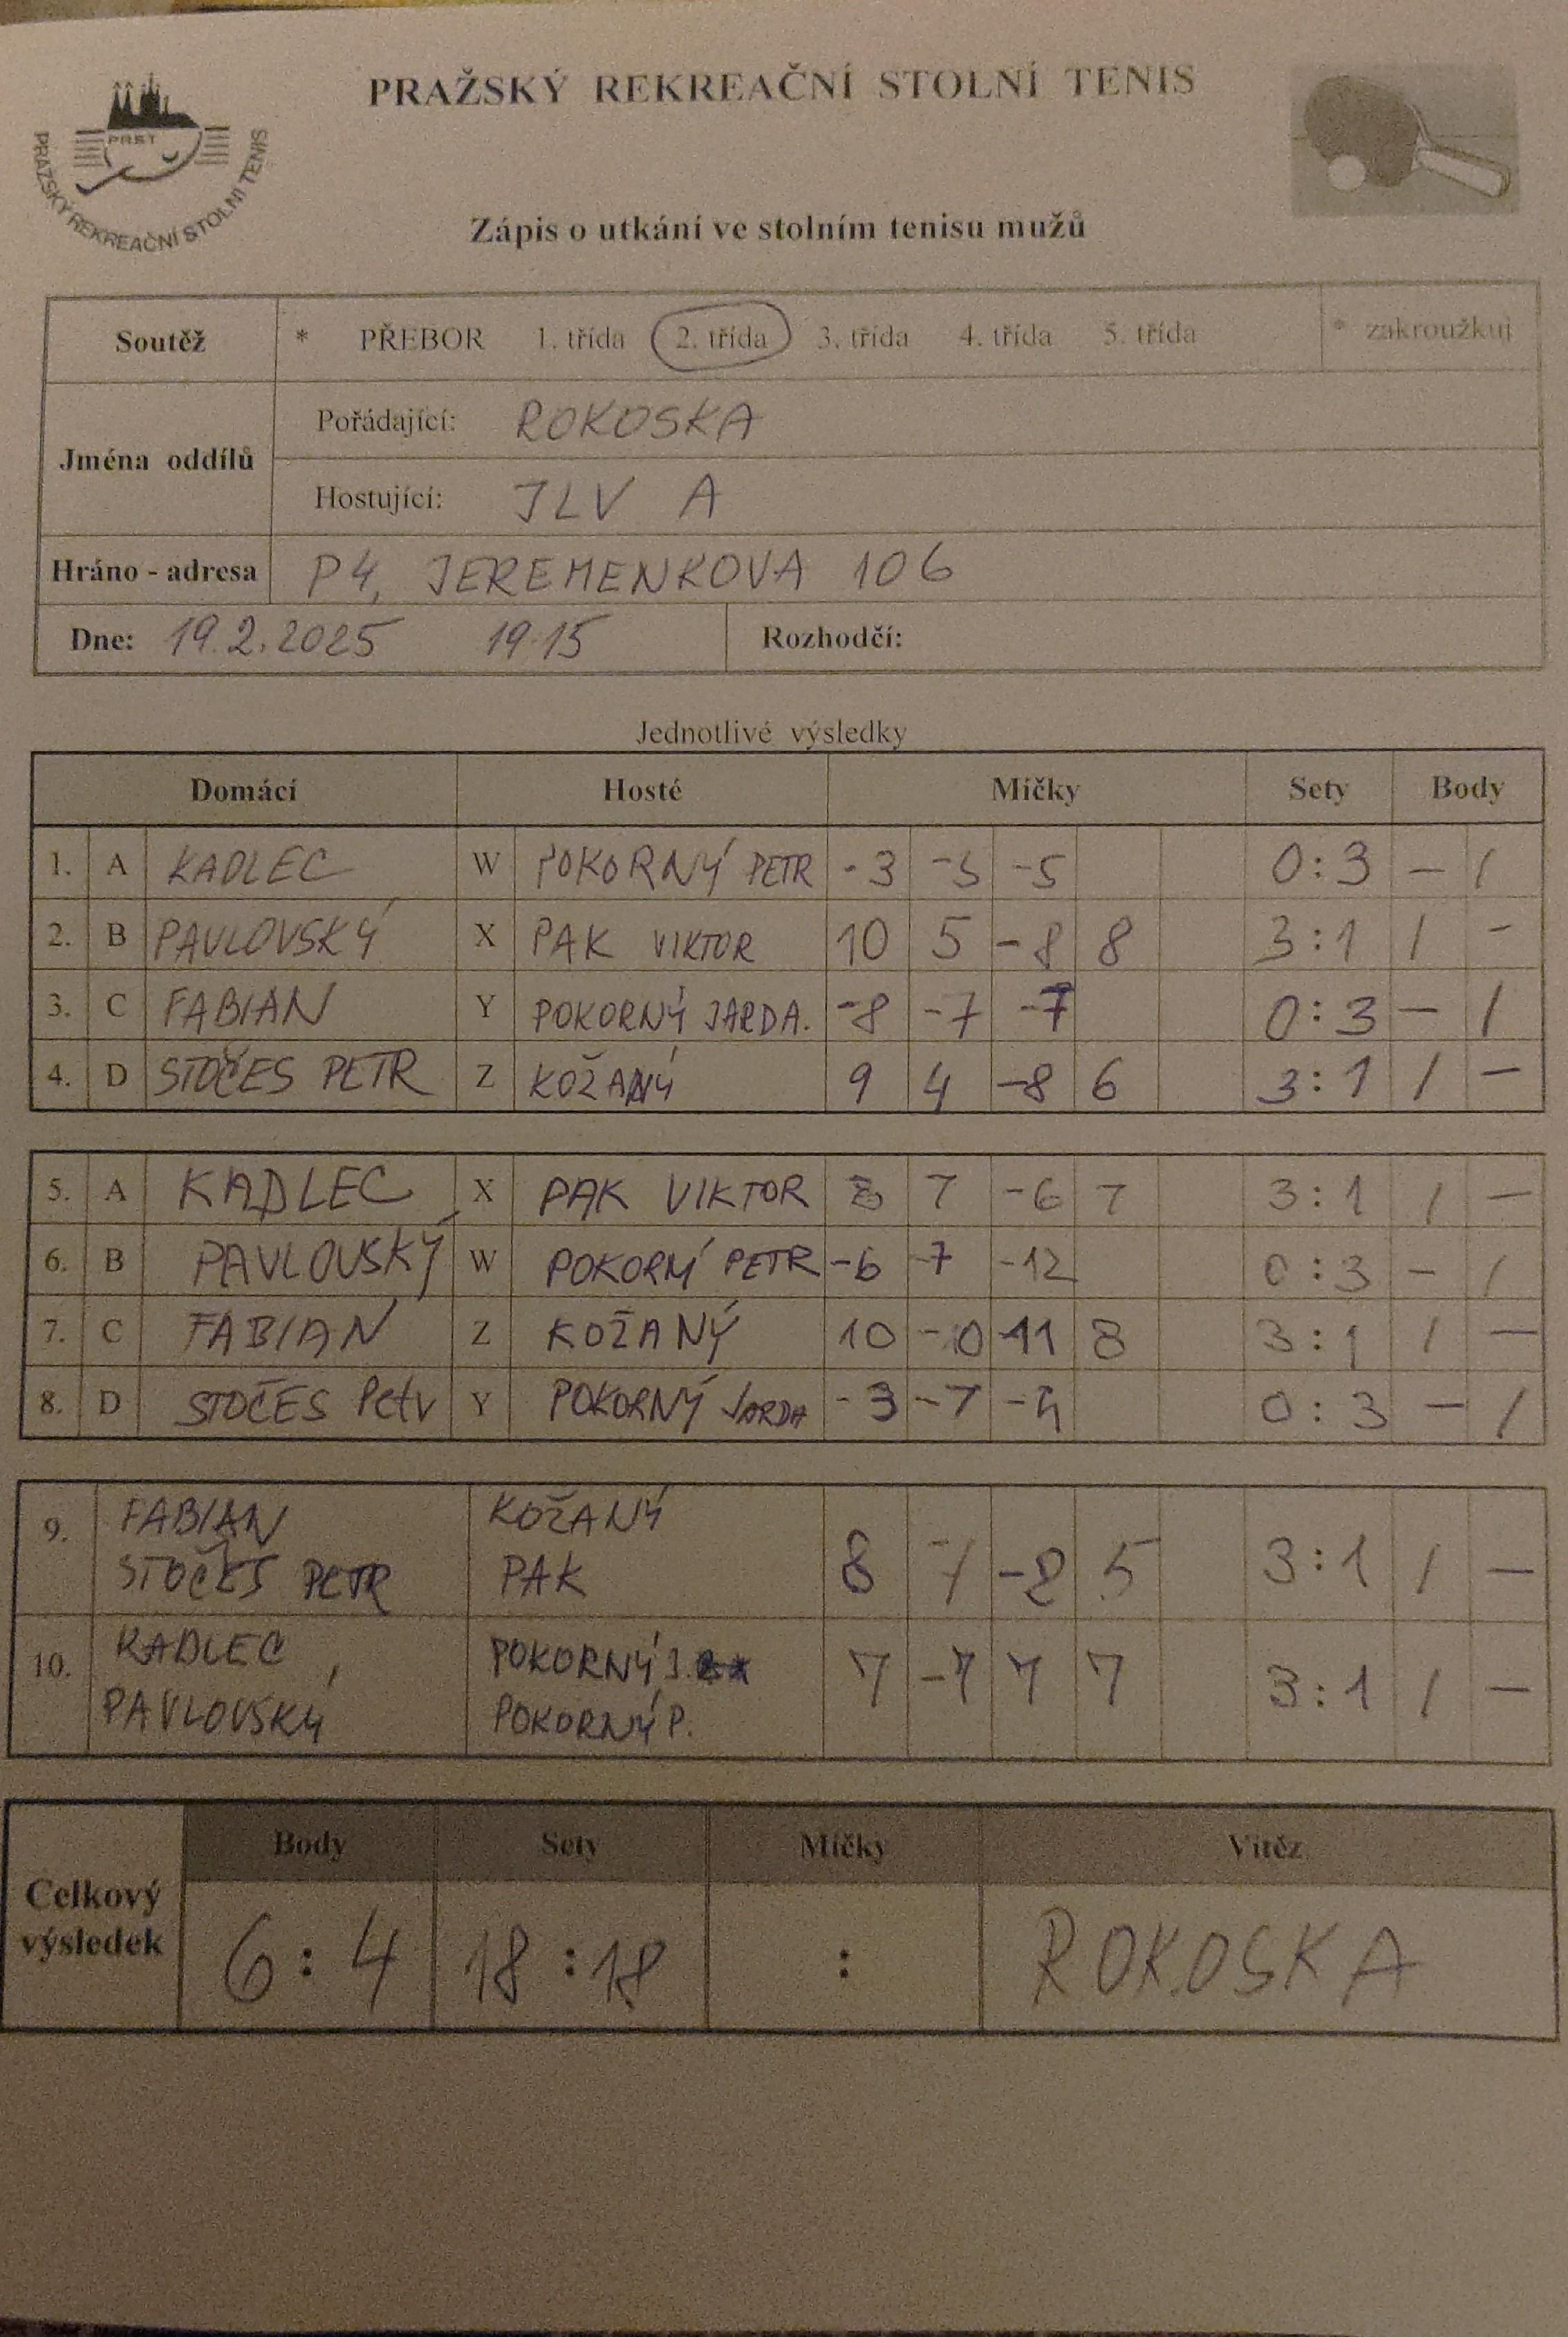 PRAŽSKÝ REKREAČNÍ STOLNÍ TENIS
PRST
PRAŽSKÝ REKREAČNÍ STOLNÍ TENIS
Zápis o utkání ve stolním tenisu mužů
Soutěž * PŘEBOR 1. třída 2. třída 3. třída 4. třída 5. třída * zakroužkuj
Jména oddílů
Pořádající: ROKOSKA
Hostující: JLV A
Hráno - adresa P4, JEREMENKOVA 106
Dne: 19.2.2025 19.15 Rozhodčí:
Jednotlivé výsledky
Domácí Hosté Míčky Sety Body
1. A KADLEC W POKORNÝ PETR -3 -5 -5 0:3 - /
2. B PAVLOVSKÝ X PAK VIKTOR 10 5 -8 8 3:1 / -
3. C FABIAN Y POKORNÝ JARDA. -8 -7 -7 0:3 - /
4. D STOČES PETR Z KOŽANÝ 9 4 -8 6 3:1 / -
5. A KADLEC X PAK VIKTOR 7 -6 7 3:1 / -
6. B PAVLOVSKÝ W POKORNÍ PETR -6 -7 -12 0:3 - /
7. C FABIAN Z KOŽANÝ 10 11 8 3:1 / -
8. D STOČES Petr Y POKORNÝ JARDA -3 -7 -4 0:3 - /
9. FABIAN KOŽANÝ 8 5 3:1 / -
STOČES PETR PAK
10. KADLEC, POKORNÝ J. 7 -7 7 7 3:1 / -
PAVLOVSKÝ POKORNÝ P.
Celkový výsledek
Body Sety Míčky Vítěz
6:4 18:18 : ROKOSKA